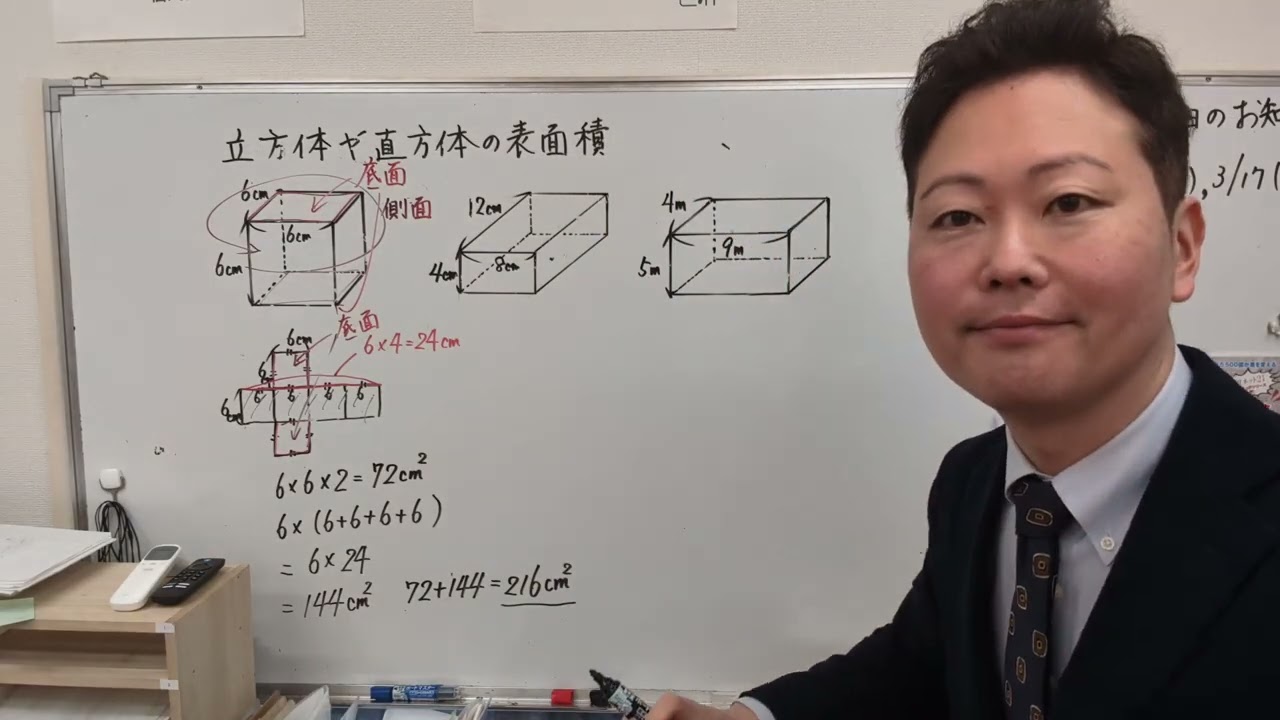 立方体や直方体の表面積
のお知
3/17(
6cm
底面
側面
6cm
6cm
12cm
4cm
8cm
4m
9m
5m
底面
6cm
6×4=24cm
6
6 6 6 6
6cm
6×6×2=72cm²
6×(6+6+6+6)
=6×24
=144cm²
72+144=216cm²